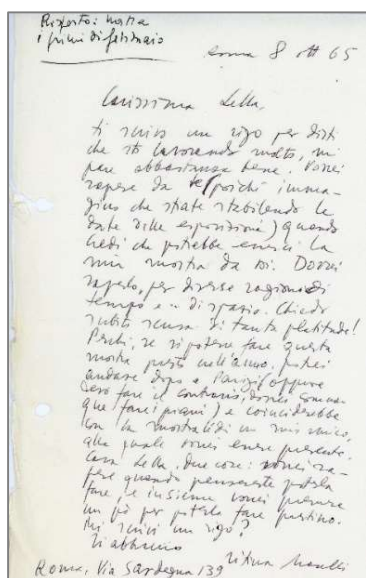 Risposto: mostra
i primi di febbraio
Roma 8 ott 65
Carissima Lella,
ti scrivo un rigo per dirti
che sto lavorando molto, mi
pare abbastanza bene. Vorrei
sapere da te (poiché imma-
gino che state stabilendo le
date delle esposizioni) quando
credi che potrebbe esserci la
mia mostra da voi. Dovrei
saperlo, per diverse ragioni di
tempo e .. di spazio. Chiedo
subito scusa di tanta platitude!
Perché, se si potesse fare questa
mostra presto nell'anno, potrei
andare dopo a Parigi (oppure
devo fare il contrario, dovrei comun-
que fare i piani) e coinciderebbe
con la mostra di un mio amico,
alla quale vorrei essere presente.
Cara Lella, due cose: vorrei sa-
pere quando pensereste poterla
fare, e insieme vorrei premere
un pò per poterla fare prestino.
Mi scrivi un rigo?
Ti abbraccio
Titina Maselli
Roma, Via Sardegna 139